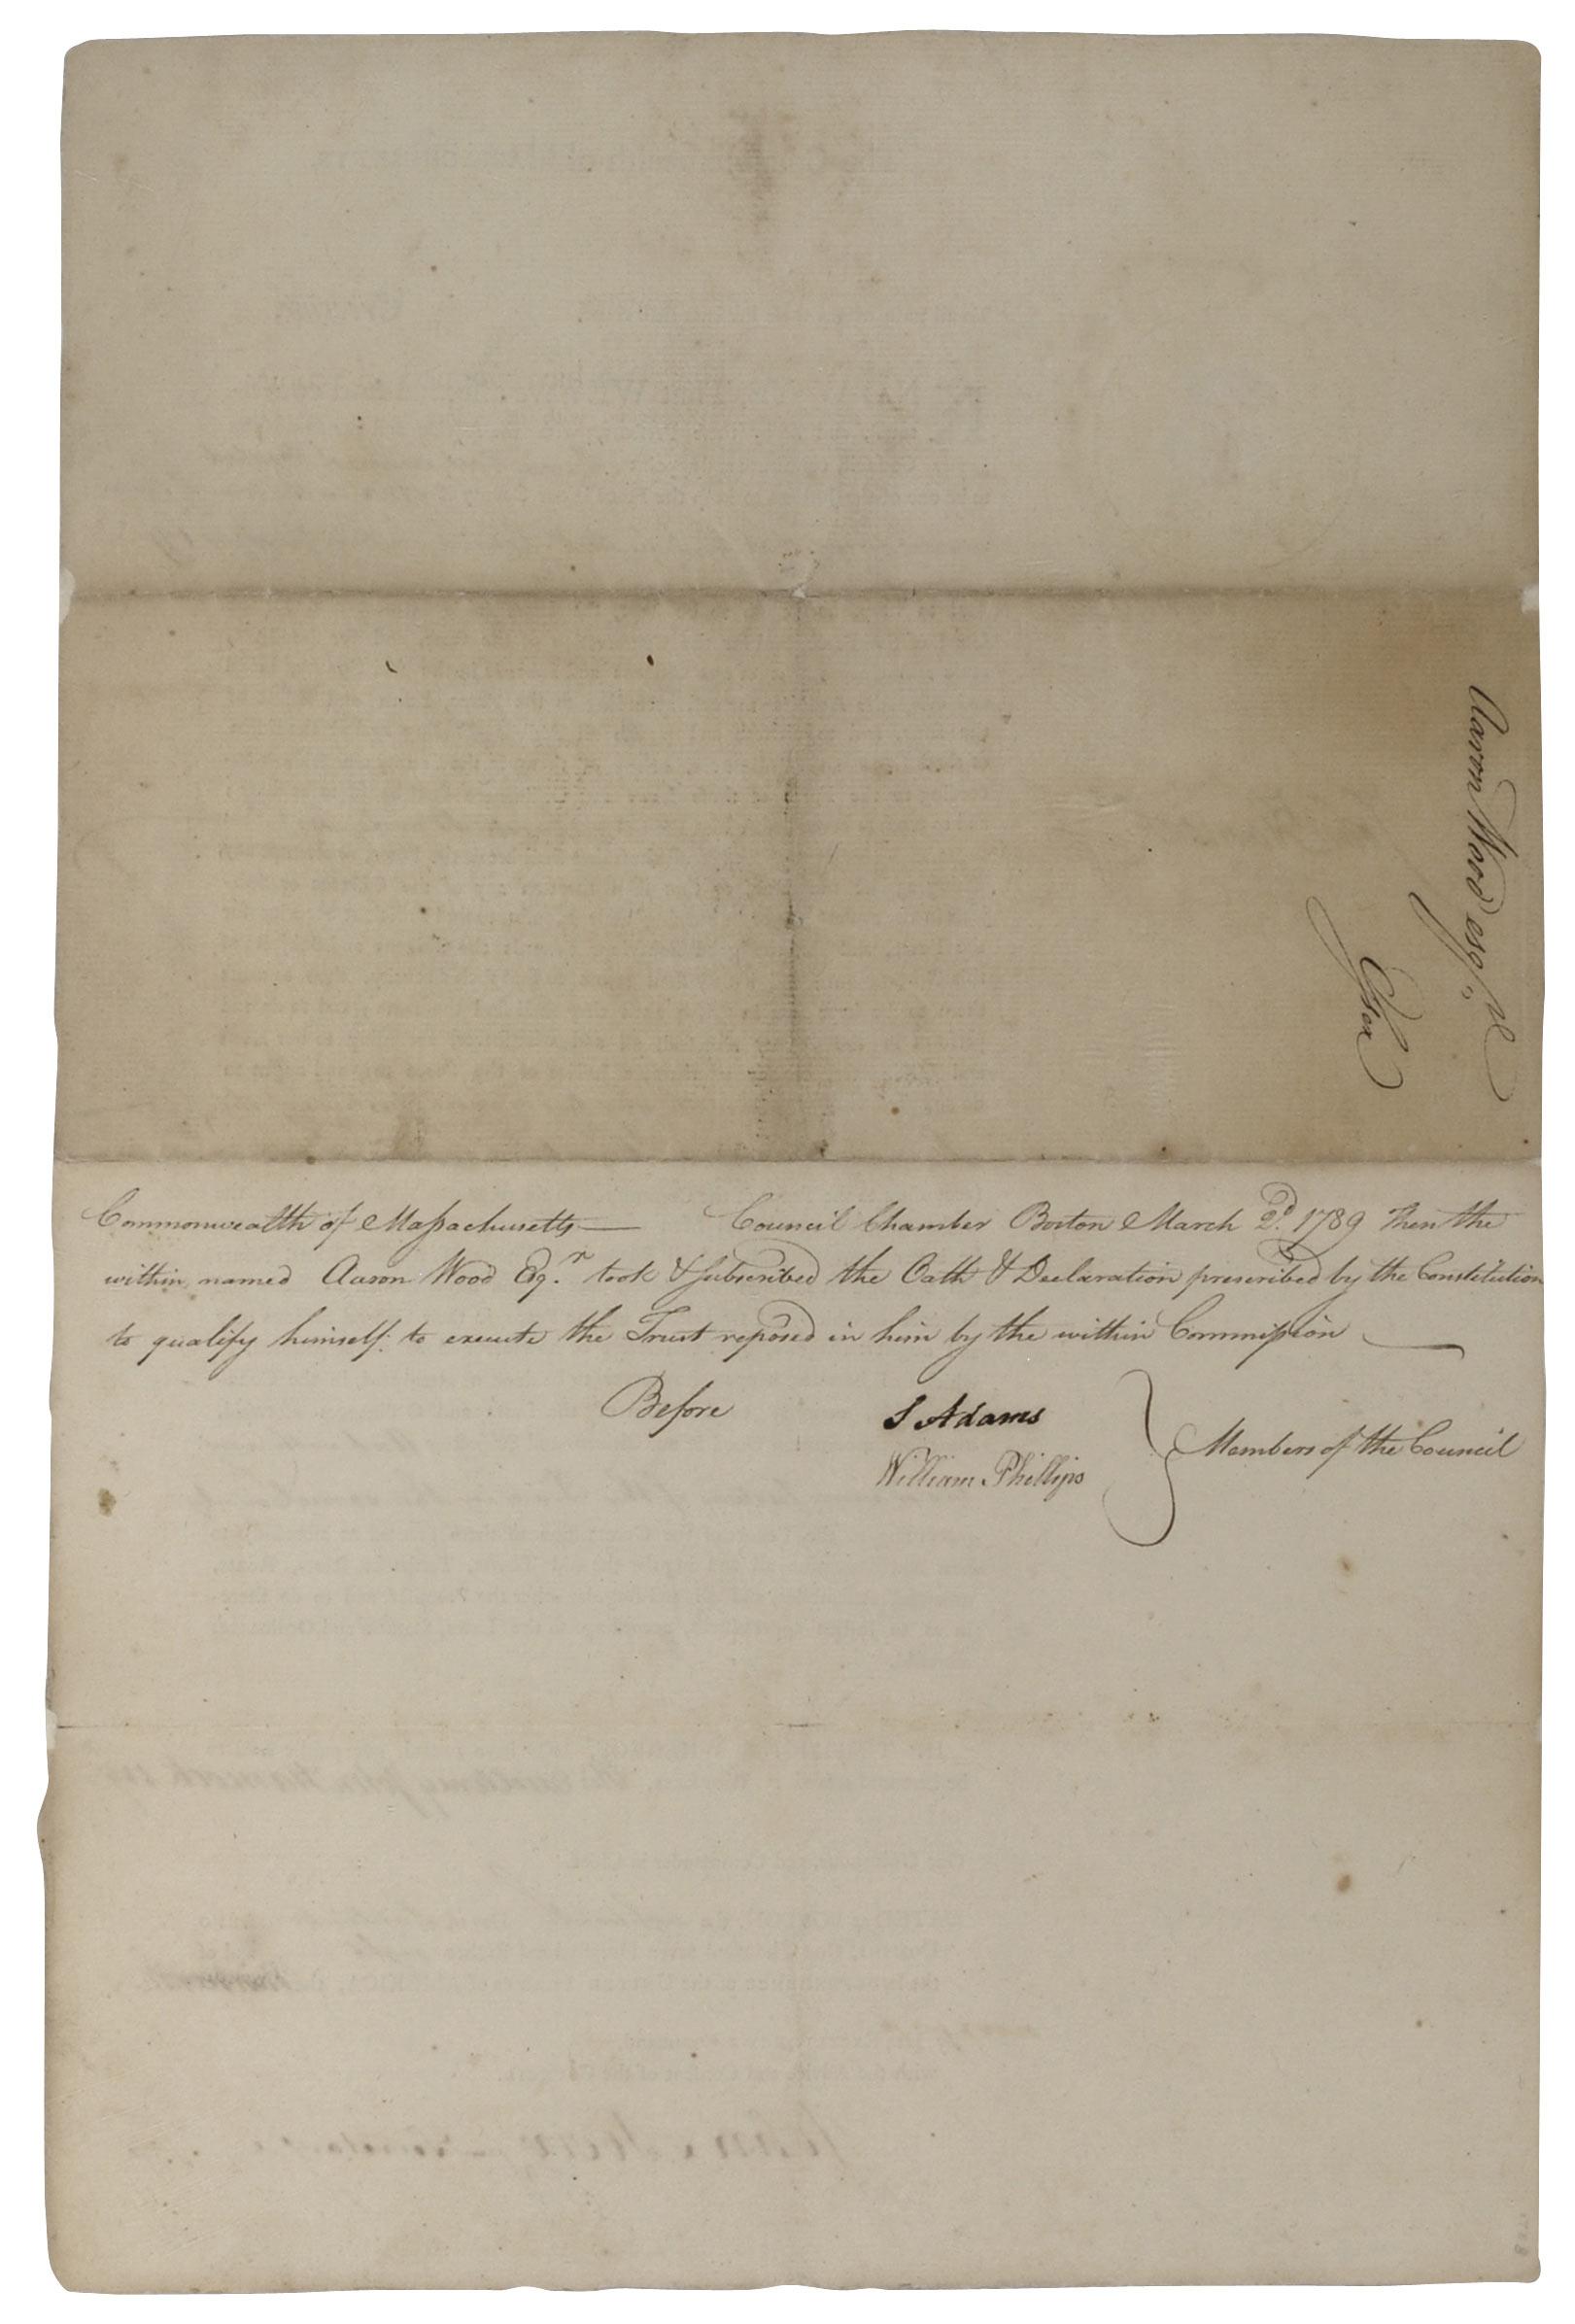 Aaron Wood esqr
Essex
Commonwealth of Massachusetts — Council Chamber Boston March 2d. 1789 Then the
within named Aaron Wood Esq.r took & subscribed the Oath & Declaration prescribed by the Constitution
to qualify himself to execute the Trust reposed in him by the within Commission —
Before S Adams
William Phillips
Members of the Council